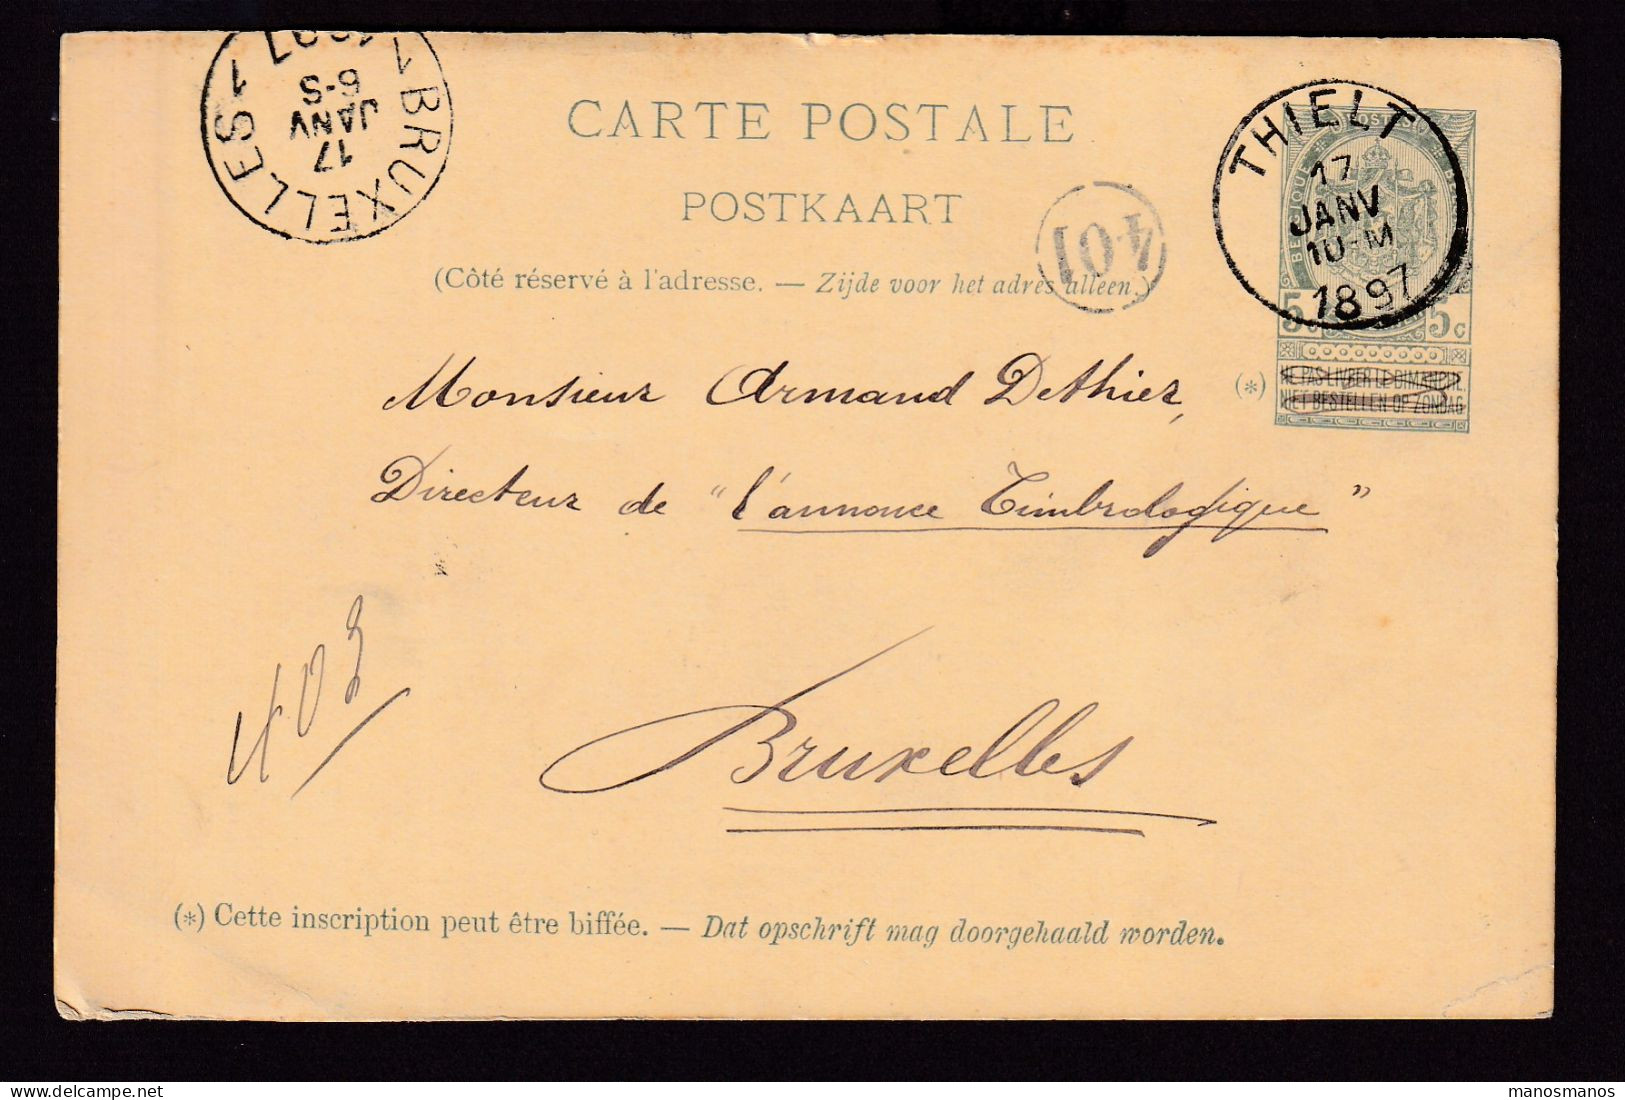 CARTE POSTALE
POSTKAART
(Côté réservé à l'adresse. — Zijde voor het adres alleen.)
BRUXELLES 1
17
JANV
6-S
THIELT
17
JANV
10-M
1897
401
POSTES
BELGIQUE
5c 5c
(*) NE PAS LIVRER LE DIMANCHE.
NIET BESTELLEN OP ZONDAG
Monsieur Armand Dethier,
Directeur de "l'annonce Timbrologique"
403
Bruxelles
(*) Cette inscription peut être biffée. — Dat opschrift mag doorgehaald worden.
manosmanos